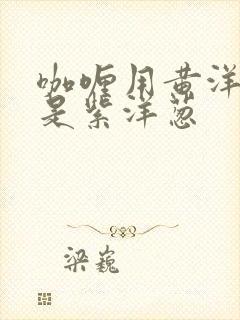 咖喱用黄洋
是紫洋葱
梁巍